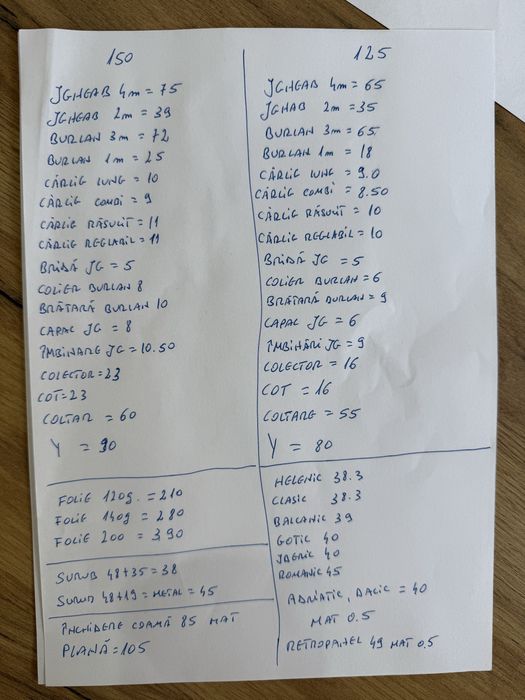 150
JGHEAB 4m = 75
JGHEAB 2m = 39
BURLAN 3m = 72
BURLAN 1m = 25
CÂRLIG LUNG = 10
CÂRLIG COMBI = 9
CÂRLIG RĂSUCIT = 11
CÂRLIG REGLABIL = 11
BRIDĂ JG = 5
COLIER BURLAN 8
BRĂTARĂ BURLAN 10
CAPAC JG = 8
ÎMBINARE JG = 10.50
COLECTOR = 23
COT = 23
COLTAR = 60
Y = 90
FOLIE 120g. = 210
FOLIE 140g = 280
FOLIE 200 = 390
SURUB 48+35 = 38
SURUB 48+19 = METAL = 45
ÎNCHIDERE COAMĂ 85 MAT
PLANĂ = 105
125
JGHEAB 4m = 65
JGHAB 2m = 35
BURLAN 3m = 65
BURLAN 1m = 18
CÂRLIG LUNG = 9.0
CÂRLIG COMBI = 8.50
CÂRLIG RĂSUCIT = 10
CÂRLIG REGLABIL = 10
BRIDĂ JG = 5
COLIER BURLAN = 6
BRĂTARĂ BURLAN = 9
CAPAC JG = 6
ÎMBINĂRI JG = 9
COLECTOR = 16
COT = 16
COLTARE = 55
Y = 80
HELENIC 38.3
CLASIC 38.3
BALCANIC 39
GOTIC 40
JBERIC 40
ROMANIC 45
ADRIATIC, DACIC = 40
MAT 0.5
RETROPANEL 49 MAT 0.5